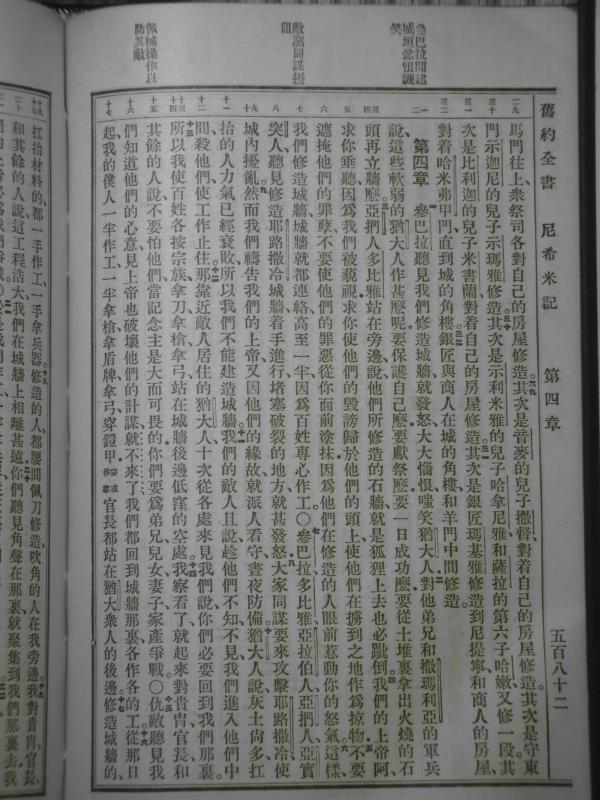 舊約全書 尼希米記 第四章 五百八十二
參巴拉聞建
城垣忿恨譏
笑
敵黨同謀擾
阻
佩械操作以
防其敵
馬門往上衆祭司各對自己的房屋修造其次是音麥的兒子撒督對着自己的房屋修造其次是守東
門示迦尼的兒子示瑪雅修造其次是示利米雅的兒子哈拿尼雅和薩拉的第六子哈嫩又修一段其
次是比利迦的兒子米書蘭對着自己的房屋修造其次是銀匠瑪基雅修造到尼提寧和商人的房屋
對着哈米弗甲門直到城的角樓銀匠與商人在城的角樓和羊門中間修造
第四章 參巴拉聽見我們修造城牆就發怒大大惱恨嗤笑猶大人對他弟兄和撒瑪利亞的軍兵
說這些軟弱的猶大人作甚麽呢要保護自己麽要獻祭麽要一日成功麽要從土堆裏拿出火燒的石
頭再立牆麽亞捫人多比雅站在旁邊說他們所修造的石牆就是狐狸上去也必跐倒我們的上帝阿
求你垂聽因爲我們被藐視求你使他們的毀謗歸於他們的頭上使他們在擄到之地作爲掠物不要
遮掩他們的罪孽不要使他們的罪惡從你面前塗抹因爲他們在修造的人眼前惹動你的怒氣這樣
我們修造城牆城牆就都連絡高至一半因爲百姓專心作工〇參巴拉多比雅亞拉伯人亞捫人亞實
突人聽見修造耶路撒冷城牆着手進行堵塞破裂的地方就甚發怒大家同謀要來攻擊耶路撒冷使
城內擾亂然而我們禱告我們的上帝又因他們的緣故就派人看守晝夜防備猶大人說灰土尚多扛
抬的人力氣已經衰敗所以我們不能建造城牆我們的敵人且說趁他們不知不見我們進入他們中
間殺他們使工作止住那靠近敵人居住的猶大人十次從各處來見我們說你們必要回到我們那裏
所以我使百姓各按宗族拿刀拿槍拿弓站在城牆後邊低窪的空處我察看了就起來對貴冑官長和
其餘的人說不要怕他們當記念主是大而可畏的你們要爲弟兄兒女妻子家產爭戰〇仇敵聽見我
們知道他們的心意見上帝也破壞他們的計謀就不來了我們都回到城牆那裏各作各的工從那日
起我的僕人一半作工一半拿槍拿盾牌拿弓穿鎧甲官長都站在猶大衆人的後邊修造城牆的
扛抬材料的都一手作工一手拿兵器修造的人都腰間佩刀修造吹角的人在我旁邊我對貴冑官長
和其餘的人說這工程浩大我們在城牆上相離甚遠你們聽見角聲在那裏就聚集到我們那裏去我